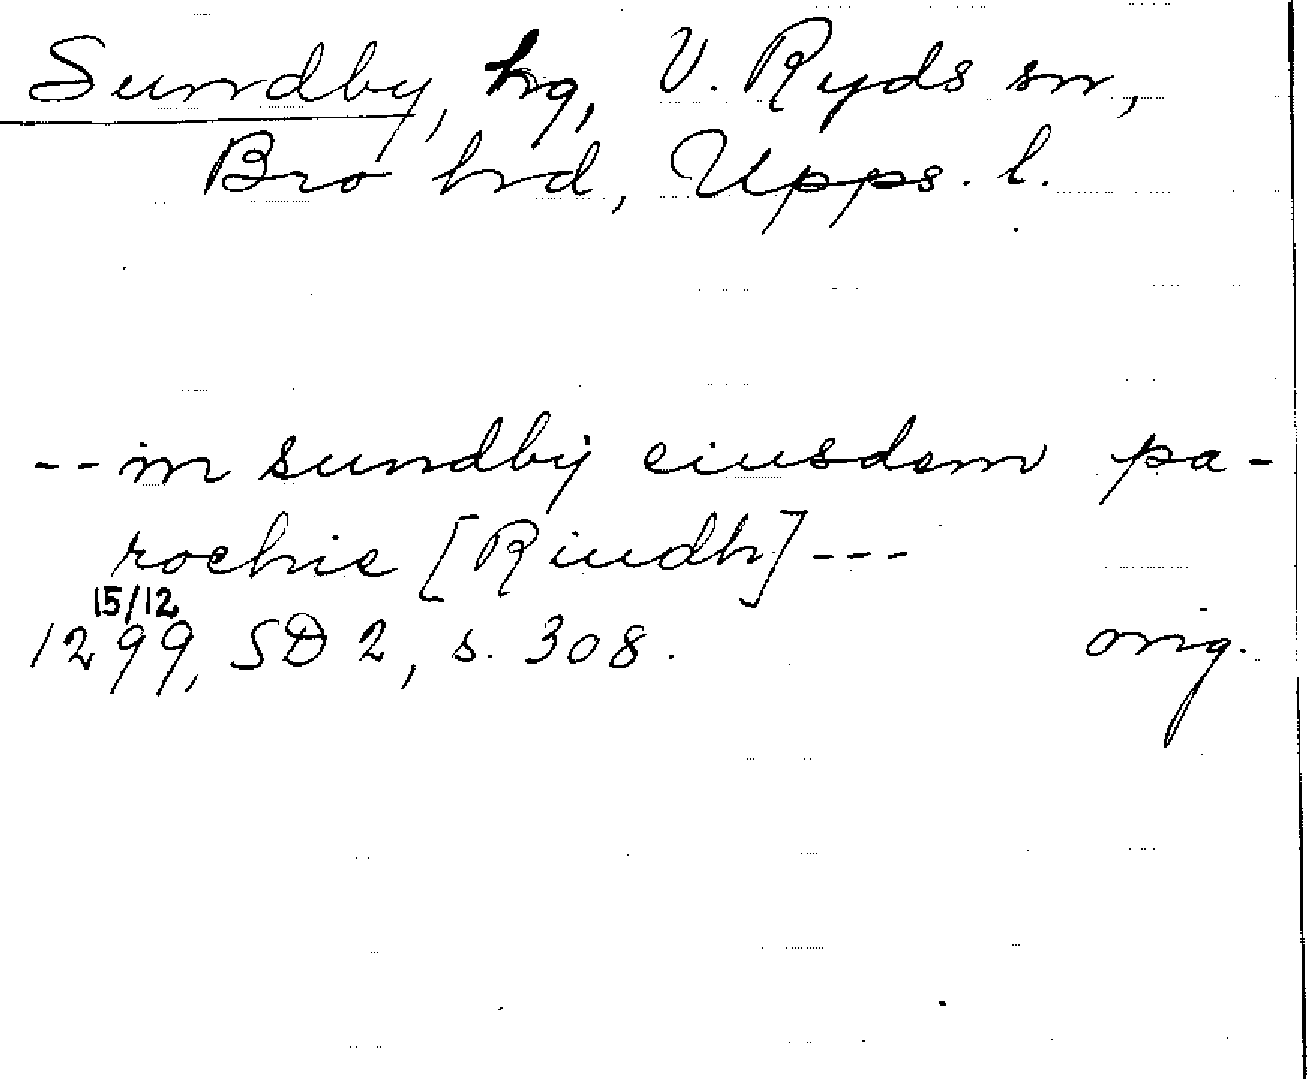 Sundby, hg, V. Ryds sn,
Bro hrd, Upps. l.
-- in sundby eiusdem pa-
rochie [Riudh] ---
15/12
1299, SD 2, s. 308. orig.